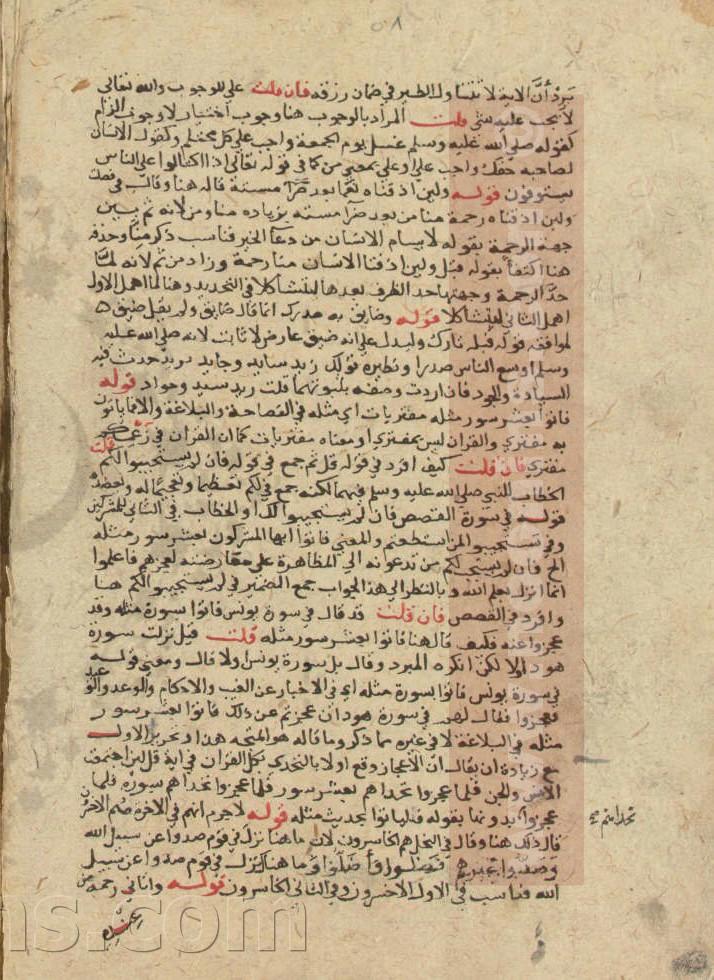 ٥٨
يرد أنّ الآية لا تتناول الطير في ضمان رزقه فان قلت على للوجوب والله تعالى
لا يجب عليه شي قلت المراد بالوجوب هنا وجوب اختيار لا وجوب الزام
كقوله صلى الله عليه وسلم غسل يوم الجمعة واجب على كل محتلم وكقول الانسان
لصاحبه حقك واجب علي او على بمعنى من كما في قوله تعالى اذا اكتالوا على الناس
يستوفون قوله ولين اذقناه نعما بعد ضرآ مسته قاله هنا وقال في فصلت
ولين اذقناه رحمة منا من بعد ضرآ مسته بزياده منا ومن لانه ثم بين
جهة الرحمة بقوله لا يسام الانسان من دعآ الخير فناسب ذكر منا وحذفه
هنا اكتفا بقوله قبل ولين اذقنا الانسان منا رحمة وزاد من ثم لانه لما
حدّ الرحمة وجهتها حد الظرف بعدها ليتشاكلا في التحديد وهنا لما اهمل الاول
اهمل الثاني ليتشاكلا قوله وضايق به صدرك انما قال ضايق ولم يقل ضيق
لموافقة قوله قبله تارك وليدل على انه ضيق عارض لا ثابت لانه صلى الله عليه
وسلم اوسع الناس صدرا ونظيره قولك زيد سايد وجايد تريد حدث فيه
السيادة والجود فان اردت وصفه بثبوتهما قلت زيد سيد وجواد قوله
فاتوا بعشر سور مثله مفتريات اي مثله في الفصاحة والبلاغة والا فما ياتون
به مفتري والقران ليس بمفتري او معناه مفتريات كما ان القران في زعمكم
مفتري فان قلت كيف افرد في قوله قل ثم جمع في قوله فان لم يستجيبوا لكم قلت
الخطاب للنبي صلى الله عليه وسلم فيهما لكنه جمع في لكم تعظيما وتفخيما له ويعضده
قوله في سورة القصص فان لم يستجيبوا لك او الخطاب في الثاني للمشركين
وفي يستجيبوا لمن استطعتم والمعنى فاتوا ايها المشركون بعشر سور مثله
الخ فان لم يستجب لكم من تدعونه الى المظاهرة على معارضته لعجزهم فاعلموا
انما انزل بعلم الله وبالنظر الى هذا الجواب جمع الضمير في لم يستجيبوا لكم هنا
وافرد في القصص فان قلت قد قال في سورة يونس فاتوا بسورة مثله وقد
عجزوا عنه فكيف قال هنا فاتوا بعشر سور مثله قلت قيل نزلت سورة
هود اولا لكن انكره المبرد وقال بل سورة يونس اولا قال ومعنى قوله
في سورة يونس فاتوا بسورة مثله اي في الاخبار عن الغيب والاحكام والوعد والوعيد
فعجزوا فقال لهم في سورة هود ان عجزتم عن ذلك فاتوا بعشر سور
مثله في البلاغة لا في غيره مما ذكر وما قاله هو المتجه هذا وتحرير الاول
مع زيادة ان يقال ان الاعجاز وقع اولا بالتحدى بكل القران في اية قل لين اجتمعت
الانس والجن فلما عجزوا تحداهم بعشر سور فلما عجزوا تحداهم بسورة فلما
عجزوا تحداهم بدونها بقوله فلياتوا بحديث مثله قوله لا جرم انهم في الاخرة هم الاخسرون
قال ذلك هنا وقال في النحل هم الخاسرون لان ما هنا نزل في قوم صدوا عن سبيل الله
وصدوا غيرهم فضلوا واضلوا وما هناك نزل في قوم صدوا عن سبيل
الله فناسب في الاول الاخسرون وفي الثاني الخاسرون قوله واتاني رحمة من
عنده
ns.com